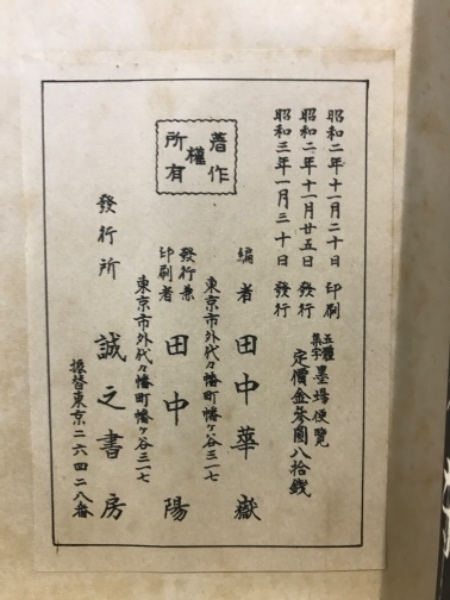 昭和二年十一月二十日 印刷
昭和二年十一月廿五日 發行
昭和三年一月三十日 發行
五體集字 墨場便覽
定價金參圓八拾錢
著作權所有
編者 田中華嶽
東京市外代々幡町幡ヶ谷三一七
發行兼印刷者 田中陽
東京市外代々幡町幡ヶ谷三一七
發行所 誠之書房
振替東京二六四二八番